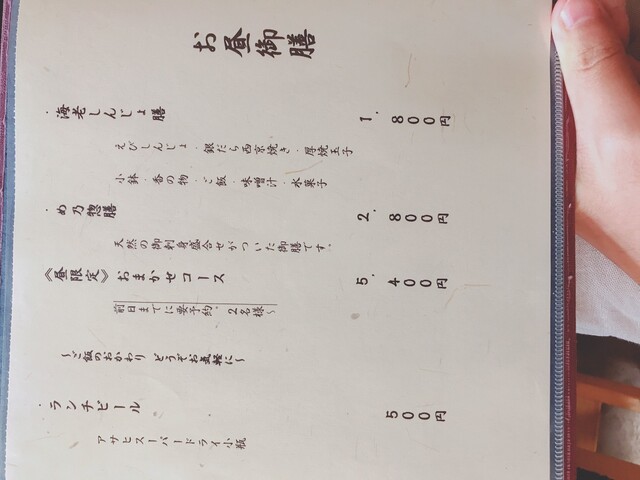 お昼御膳
・海老しんじょ膳 1.800円
えびしんじょ・銀だら西京焼き・厚焼玉子
小鉢・香の物・ご飯・味噌汁・水菓子
・め乃惣膳 2.800円
天然の御刺身盛合せがついた御膳です。
《昼限定》おまかせコース 5.400円
前日までに要予約、2名様〜
〜ご飯のおかわり どうぞお気軽に〜
・ランチビール 500円
アサヒスーパードライ小瓶